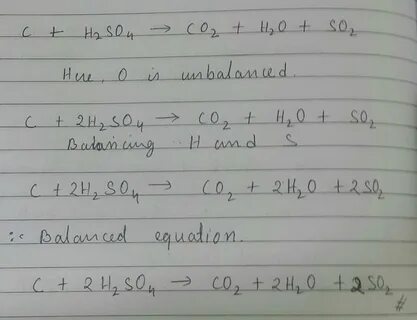 C + H₂SO₄ → CO₂ + H₂O + SO₂
Here, O is unbalanced.
C + 2H₂SO₄ → CO₂ + H₂O + SO₂
Balancing H and S
C + 2H₂SO₄ → CO₂ + 2H₂O + 2SO₂
∴ Balanced equation.
C + 2H₂SO₄ → CO₂ + 2H₂O + 2SO₂ #